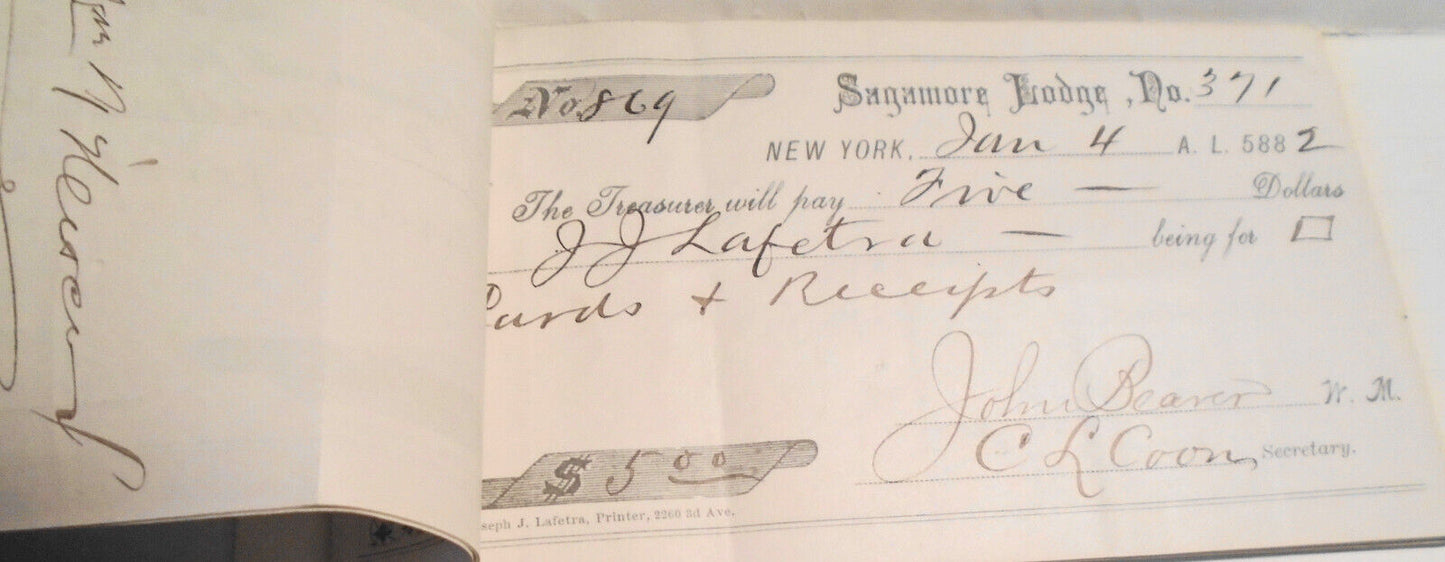 No. 869
Sagamore Lodge, No. 371
NEW YORK, Jan 4 A. L. 5882
The Treasurer will pay Five — Dollars
J J Lafetra — being for
Cards + Receipts
John Beaver W. M.
C L Coon, Secretary.
$ 5.00
seph J. Lafetra, Printer, 2260 3d Ave.